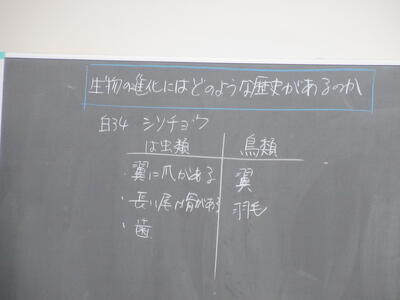 生物の進化にはどのような歴史があるのか
白34 シソチョウ
は虫類 鳥類
・翼に爪がある 翼
・長い尾に骨がある 羽毛
・歯